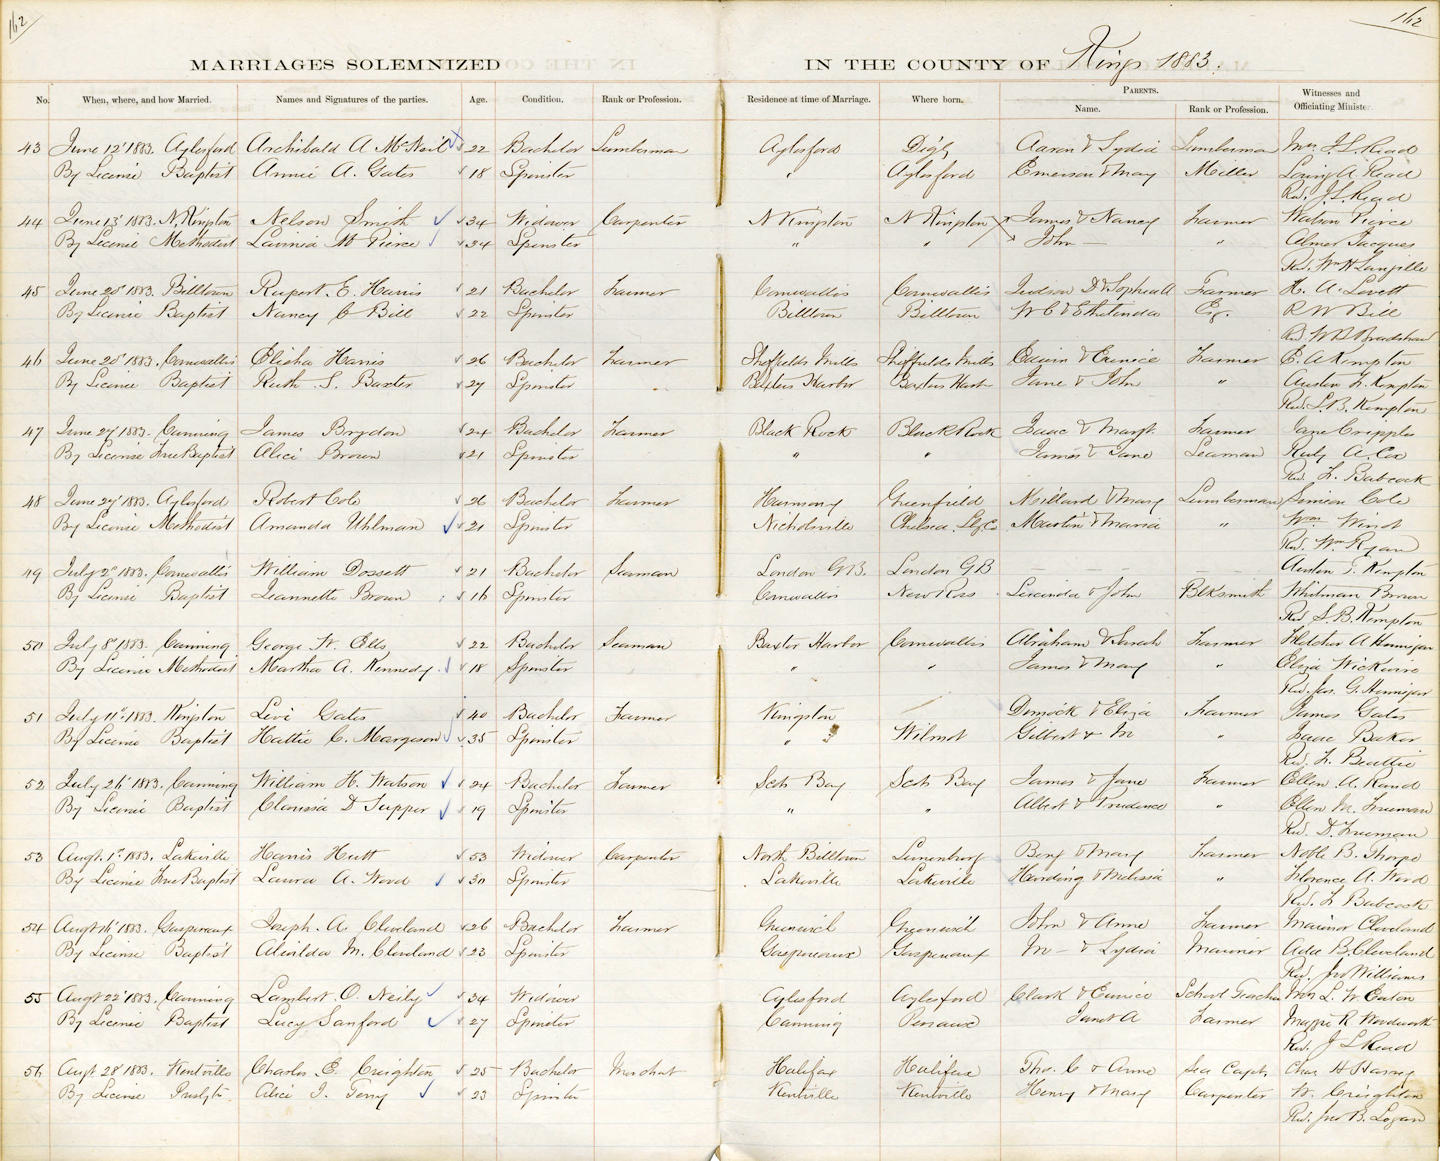 162
162
MARRIAGES SOLEMNIZED IN THE COUNTY OF Kings 1883.
No. When, where, and how Married. Names and Signatures of the parties. Age. Condition. Rank or Profession. Residence at time of Marriage. Where born. PARENTS. Name. Rank or Profession. Witnesses and Officiating Minister.
43 June 12' 1883. Aylesford Archibald A McNeil 22 Bachelor Lumberman Aylesford Digby Aaron & Lydia Lumberman Mrs J L Read
By License Baptist Annie A. Gates 18 Spinster " Aylesford Emerson & Mary Miller Loring A Read
Rev. J L Read
44 June 13' 1883. N. Kingston Nelson Smith 34 Widower Carpenter N Kingston N Kingston James & Nancy Farmer Watson Pierce
By License Methodist Lavinia W Pierce 24 Spinster " " John — " Jacques
Rev. Wm H Langille
45 June 20' 1883. Billtown Rupert E. Harris 21 Bachelor Farmer Cornwallis Cornwallis Judson D & Sophia A Farmer H. A. Lovett
By License Baptist Nancy C Bill 22 Spinster Billtown Billtown W C & Ethelenda Esq. R W Bill
Rev. W B Bradshaw
46 June 20' 1883. Cornwallis Elisha Harris 26 Bachelor Farmer Sheffields Mills Sheffields Mills Edwin & Eunice Farmer E. A Kempton
By License Baptist Ruth S. Baxter 27 Spinster Baxters Harbor Baxters Harb Jane & John " Austin F. Kempton
Rev. S. B. Kempton
47 June 27' 1883. Canning James Brydon 24 Bachelor Farmer Black Rock Black Rock Isaac & Margt. Farmer Jane Cripples
By License Free Baptist Alice Brown 21 Spinster " " James & Jane Seaman Ruby A. Cox
Rev. F. Babcock
48 June 27' 1883. Aylesford Robert Cole 26 Bachelor Farmer Harmony Greenfield & Mary Lumberman Simeon Cole
By License Methodist Amanda Uhlman 21 Spinster Nicholsville Chelsea Lg. Co. Martin & Maria " Wm
Rev. Wm Ryan
49 July 2' 1883. Cornwallis William Dossett 21 Bachelor Seaman London G.B. London GB — — — — — Austin F. Kempton
By License Baptist Jeannette Brown 16 Spinster Cornwallis New Ross Lucinda & John Blksmith Whitman Brown
Rev S. B. Kempton
50 July 8' 1883. Canning George W. Ells 22 Bachelor Seaman Baxter Harbor Cornwallis Abraham & Sarah Farmer Fletcher A Hennigar
By License Methodist Martha A. Kennedy. 18 Spinster " " James & Mary " Eliza Wickwire
Rev. Jas. G. Hennigar
51 July 11' 1883. Kingston Levi Gates 40 Bachelor Farmer Kingston Dimock & Eliza Farmer James Gates
By License Baptist Hattie C. Margeson 35 Spinster " Wilmot Gilbert & M " Isaac Baker
Rev. F. Beattie
52 July 26' 1883. Canning William H. Watson 24 Bachelor Farmer Scots Bay Scots Bay James & Jane Farmer Ellen A. Rand
By License Baptist Clarissa D Tupper 19 Spinster " " Albert & Prudence " Ellen M. Freeman
Rev. D. Freeman
53 Augt. 1' 1883. Lakeville Harris Hutt 53 Widower Carpenter North Billtown Lunenburg Benj & Mary Farmer Noble B. Thorpe
By License Free Baptist Laura A. Wood 30 Spinster Lakeville Lakeville Harding & Melissa " Florence A. Wood
Rev. F Babcock
54 Augt 16' 1883. Gaspereaux Joseph. A. Cleveland 26 Bachelor Farmer Greenwich Greenwich John & Anne Farmer Cleveland
By License Baptist Alvilda M. Cleveland 23 Spinster Gaspereaux Gaspereaux M — & Lydia Mariner Adda B. Cleveland
Rev. Jno Williams
55 Augt 22' 1883. Canning Lambert O. Neily 34 Widower Aylesford Aylesford Clark & Eunice School Teacher Mrs L. W. Eaton
By License Baptist Lucy Sanford 27 Spinster Canning Pereaux Janet A Farmer Maggie R Woodworth
Rev. J L Read
56 Augt. 28' 1883. Kentville Charles E. Creighton 25 Bachelor Merchant Halifax Halifax Thos. C & Anne Sea Capt. Chas H Harvey
By License Presbytn. Alice J. Terry 23 Spinster Kentville Kentville Henry & Mary Carpenter W. Creighton
Rev. Jno B. Logan